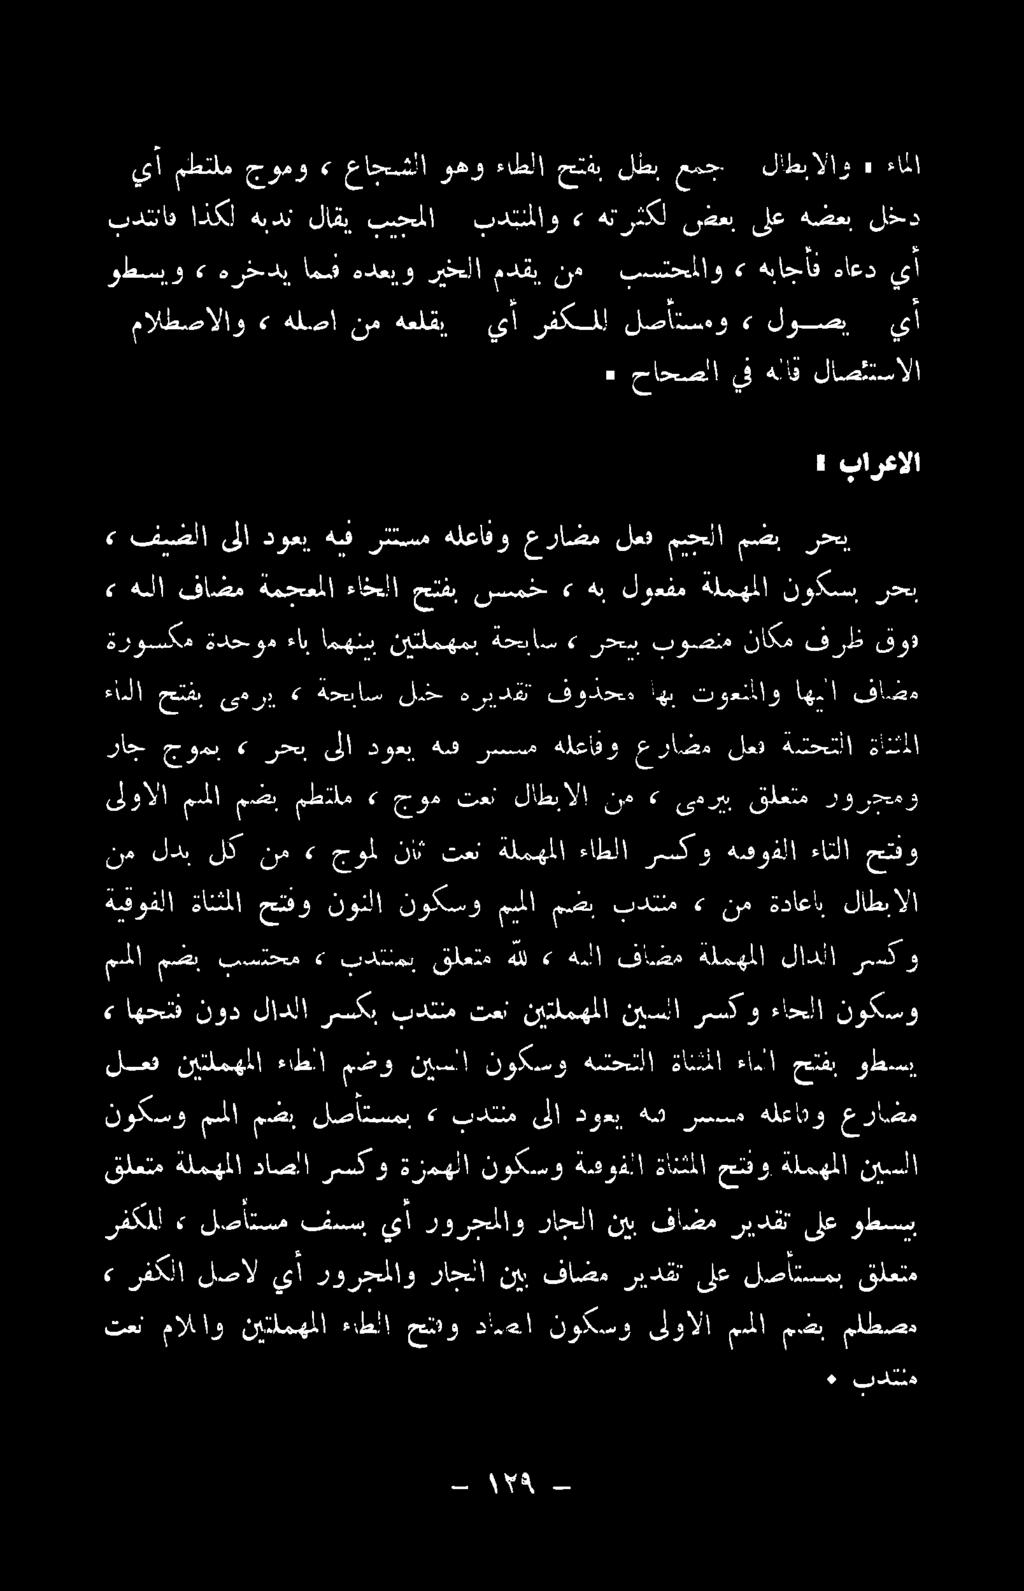 الماء . والابطال جمع بطل بفتح الطاء وهو الشجاع ، وموج ملتطم أي
دخل بعضه على بعض لكثرته ، والمنتدب المجيب يقال ندبه لكذا فانتدب
أي دعاه فأجابه ، والمحتسب من يقدم الخير ويعده فيما يدخره ، ويسطو
أي يصول ، ومستأصل للكفر أي يقلعه من اصله ، والاصطلام
الاستئصال قاله في الصحاح .
الاعراب :
يجر بضم الجيم فعل مضارع وفاعله مستتر فيه يعود الى الضيف ،
بحر بسكون المهملة مفعول به ، خميس بفتح الخاء المعجمة مضاف اليه ،
فوق ظرف مكان منصوب بيجر ، سابحة بمهملتين بينهما باء موحدة مكسورة
مضاف اليها والمنعوت بها محذوف تقديره خيل سابحة ، يرمى بفتح الياء
المثناة التحتية فعل مضارع وفاعله مستتر فيه يعود الى بحر ، بموج جار
ومجرور متعلق بيرمى ، من الابطال نعت موج ، ملتطم بضم الميم الاولى
وفتح التاء الفوقية وكسر الطاء المهملة نعت ثان لموج ، من كل بدل من
الابطال باعادة من ، منتدب بضم الميم وسكون النون وفتح المثناة الفوقية
وكسر الدال المهملة مضاف اليه ، لله متعلق بمنتدب ، محتسب بضم الميم
وسكون الحاء وكسر السين المهملتين نعت منتدب بكسر الدال دون فتحها ،
يسطو بفتح الياء المثناة التحتية وسكون السين وضم الطاء المهملتين فعل
مضارع وفاعله مستتر فيه يعود الى منتدب ، بمستأصل بضم الميم وسكون
السين المهملة وفتح المثناة الفوقية وسكون الهمزة وكسر الصاد المهملة متعلق
بيسطو على تقدير مضاف بين الجار والمجرور أي بسيف مستأصل ، للكفر
متعلق بمستأصل على تقدير مضاف بين الجار والمجرور أي لاصل الكفر ،
مصطلم بضم الميم الاولى وسكون الصاد وفتح الطاء المهملتين واللام نعت
منتدب .
- ١٢٩ -